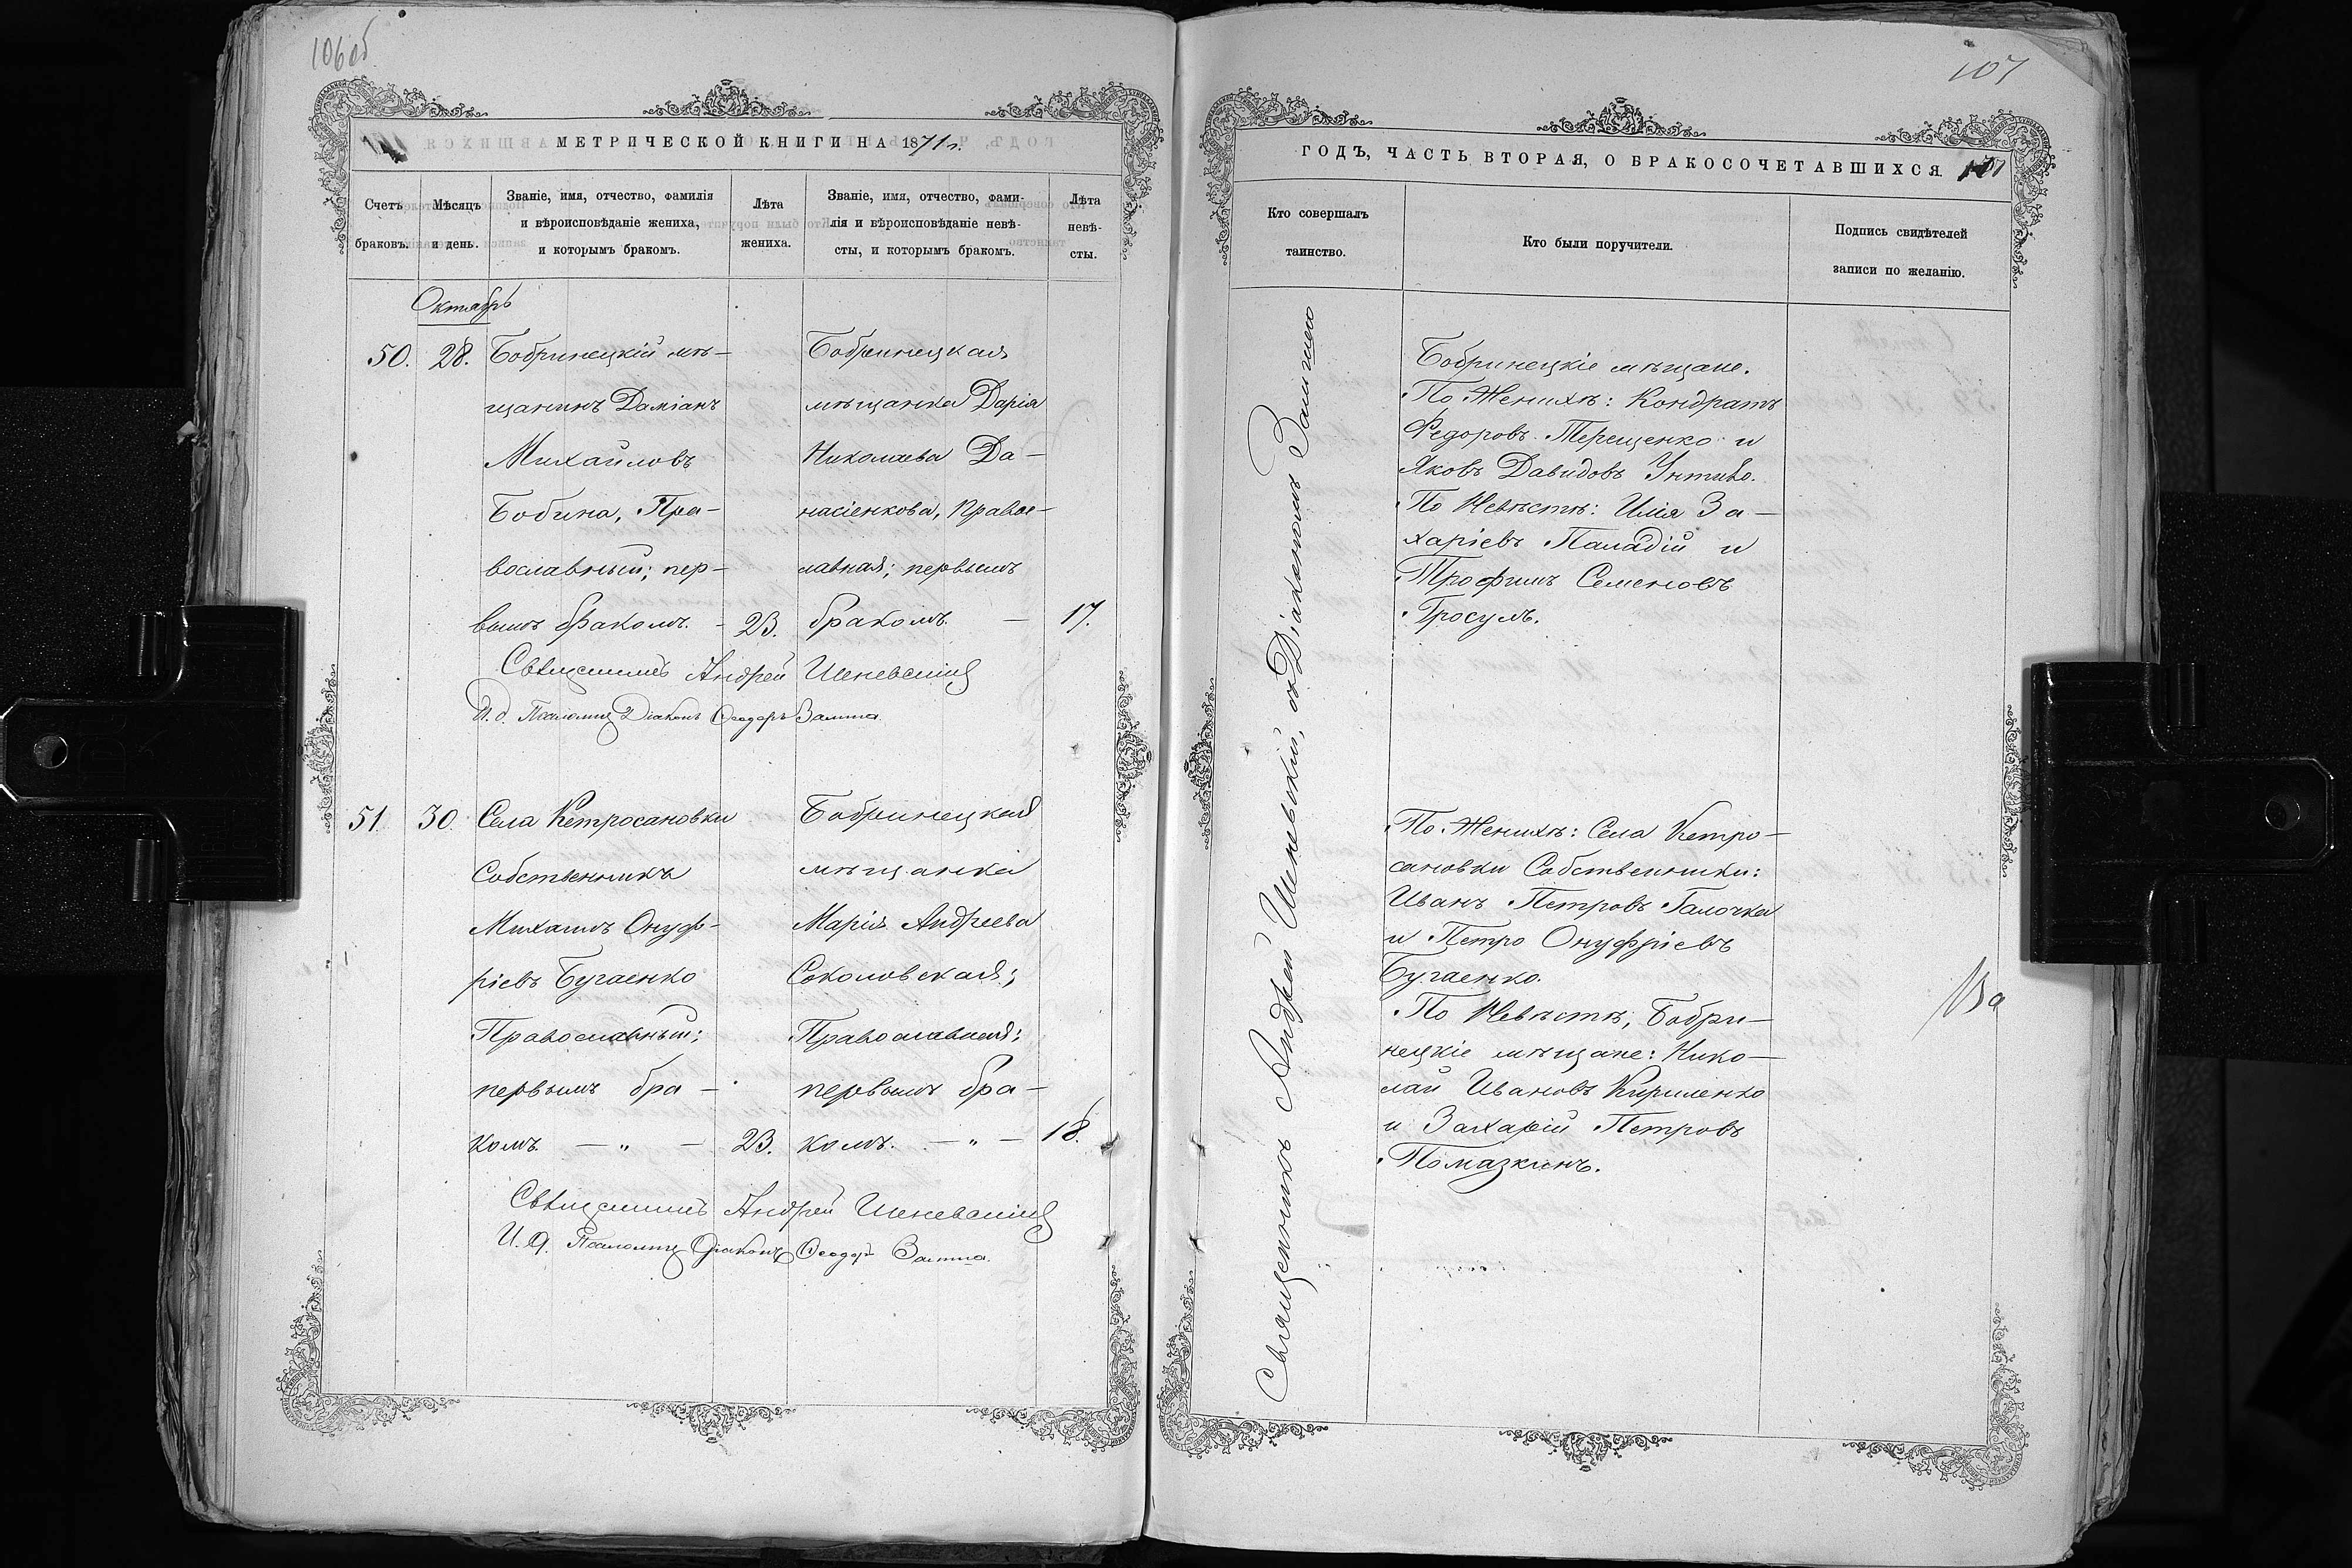 106 об
МЕТРИЧЕСКОЙ КНИГИ НА 1871 г.
Счетъ браковъ.
Мѣсяцъ и день.
Званіе, имя, отчество, фамилія
и вѣроисповѣданіе жениха,
и которымъ бракомъ.
Лѣта жениха.
Званіе, имя, отчество, фами-
лія и вѣроисповѣданіе невѣ-
сты, и которымъ бракомъ.
Лѣта невѣ-
сты.
Октябрь
50. 28. Бобринецкій мѣ-
щанинъ Даміанъ
Михайловъ
Бобина, Пра-
вославный; пер-
вымъ бракомъ. - 23.
Бобринецкая
мѣщанка Дарія
Николаева Да-
насіенкова, Право-
лавная; первымъ
бракомъ. — 17.
Священникъ Андрей Шеневскій
И. д. Псаломщ Діаконъ Ѳеодоръ
51. 30. Села Кетросановки
Собственникъ
Михаилъ Онуф-
ріевъ Бугаенко
Православный;
первымъ бра-
комъ. — „ — 23.
Бобринецкая
мѣщанка
Марія Андреева
Соколовская;
Православная;
первымъ бра-
комъ. — „ — 18.
Священникъ Андрей Шеневскій
И. д. Псаломщ Діаконъ Ѳеодоръ
107
ГОДЪ, ЧАСТЬ ВТОРАЯ, О БРАКОСОЧЕТАВШИХСЯ. 107
Кто совершалъ
таинство.
Кто были поручители.
Подпись свидѣтелей
записи по желанію.
Священникъ Андрей Шеневскій, съ Діакономъ
Бобринецкіе мѣщане.
По Женихѣ: Кондратъ
Федоровъ Терещенко и
Яковъ Давидовъ
По Невѣстѣ: Илія За-
харіевъ Паладій и
Трофимъ Семеновъ
Гросулъ.
По Женихѣ: Села Кетро-
сановки Собственники:
Иванъ Петровъ Галочка
и Петро Онуфріевъ
Бугаенко.
По Невѣстѣ, Бобри-
нецкіе мѣщане: Нико-
лай Ивановъ Кириленко
и Захарій Петровъ
Помазкинъ.